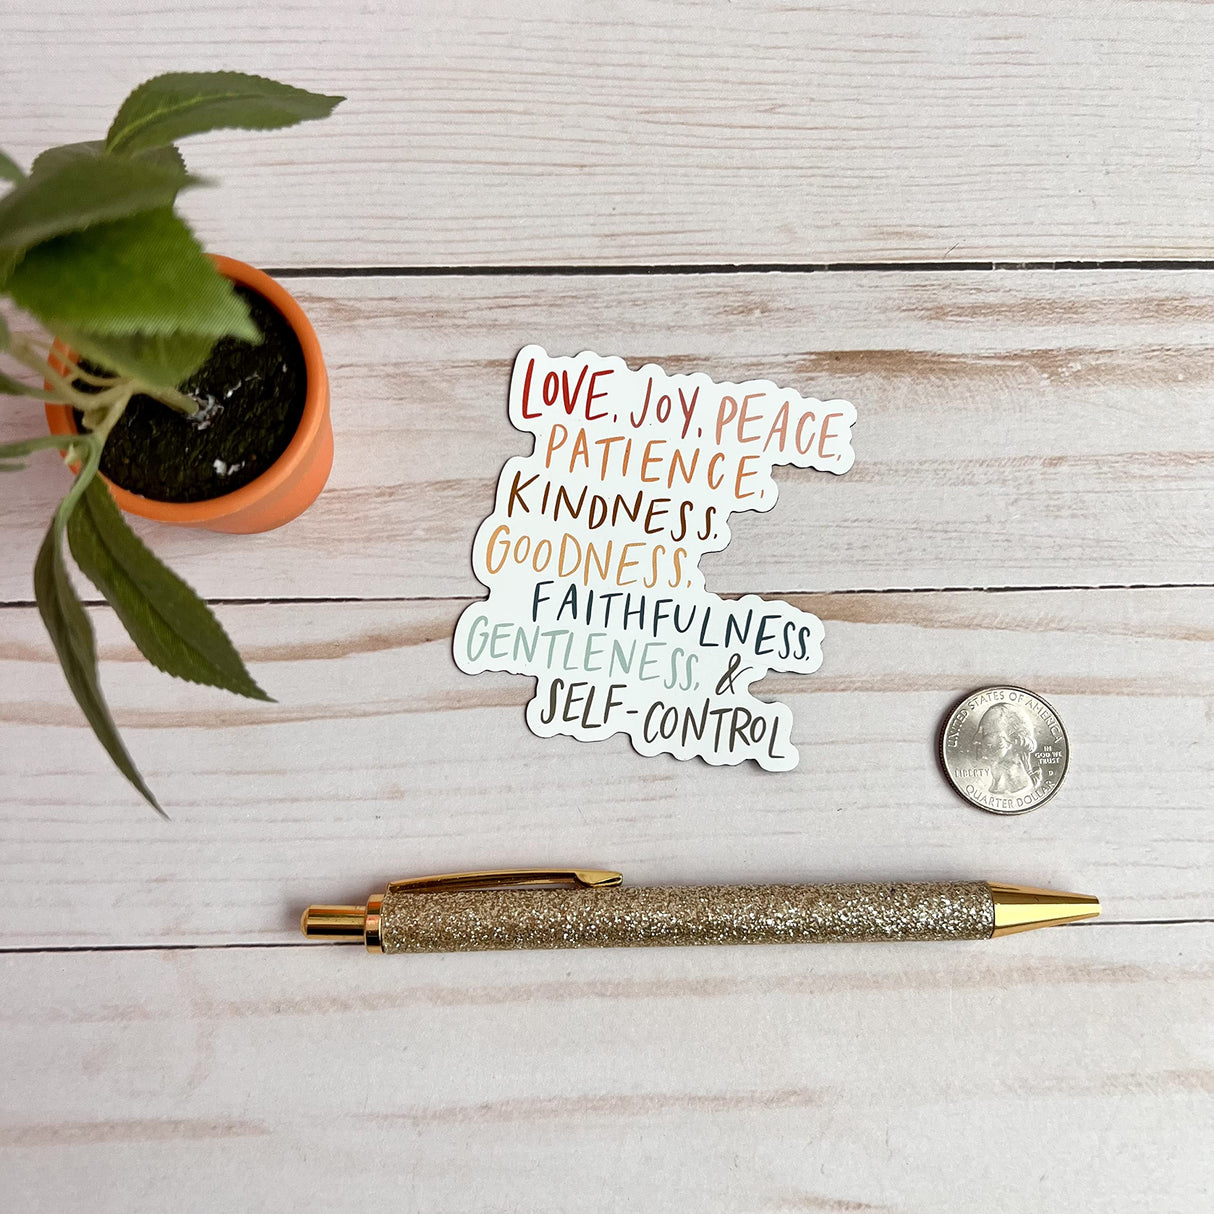 LOVE, JOY, PEACE,
PATIENCE,
KINDNESS,
GOODNESS,
FAITHFULNESS,
GENTLENESS, &
SELF-CONTROL
UNITED STATES OF AMERICA
LIBERTY
IN
GOD WE
TRUST
D
QUARTER DOLLAR